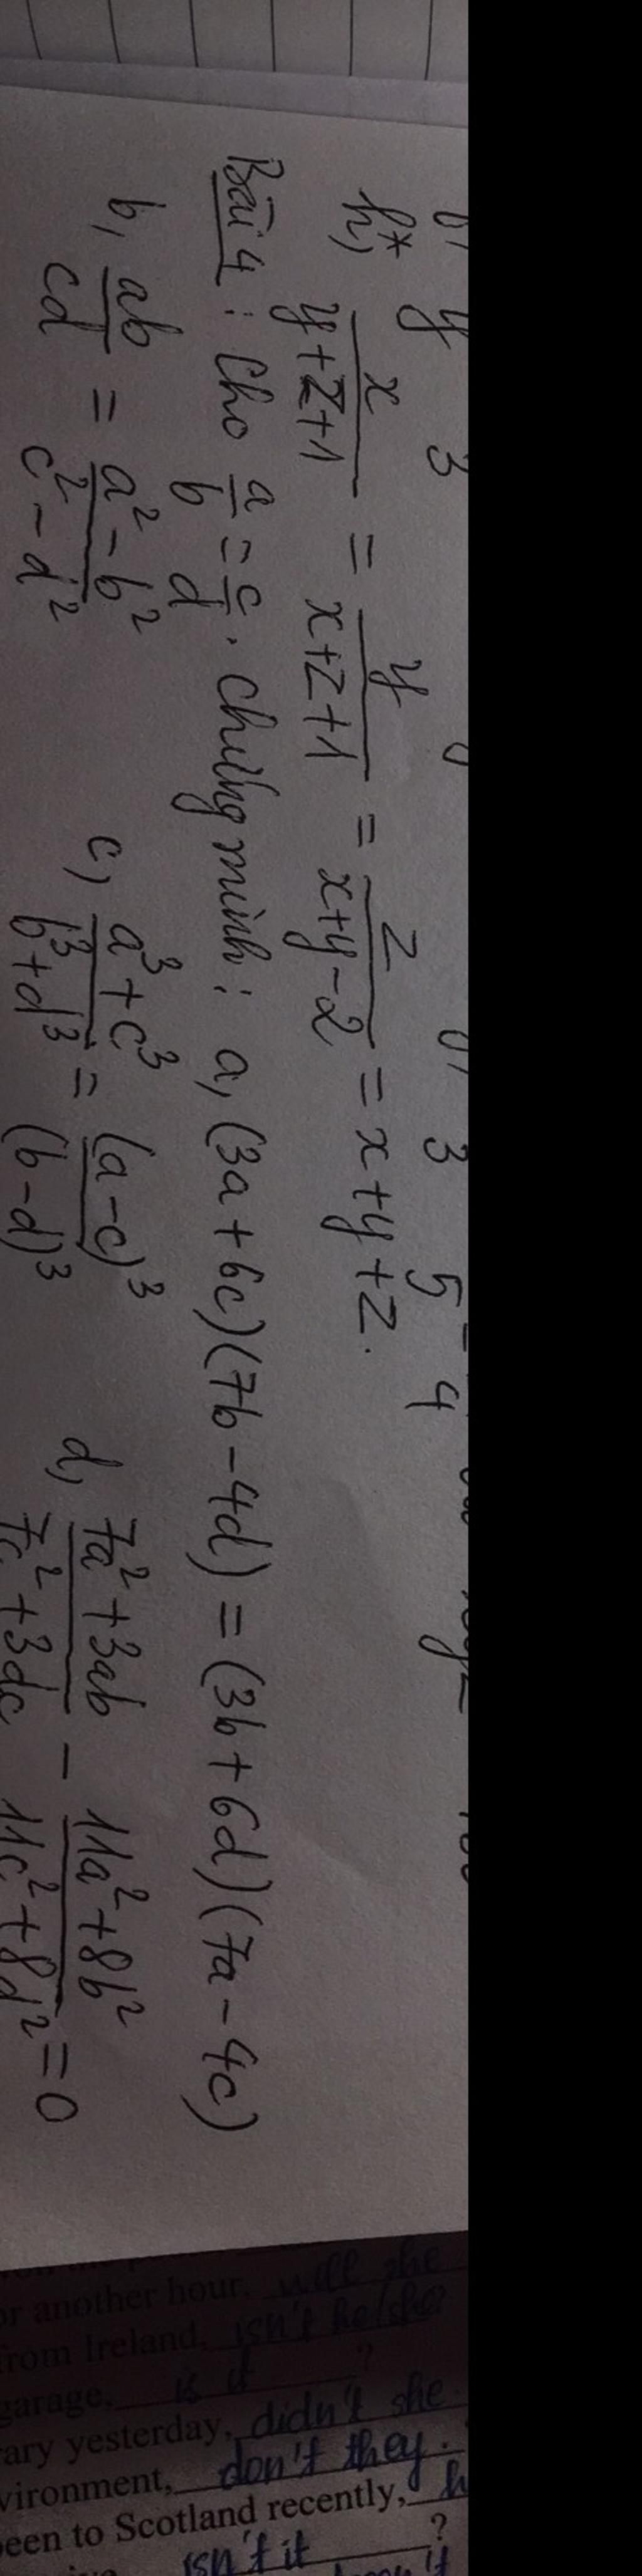 h,* x/(y+z+1) = y/(x+z+1) = z/(x+y-2) = x+y+z.
Bài 4: Cho a/b = c/d. chứng minh: a, (3a+6c)(7b-4d) = (3b+6d)(7a-4c)
b, ab/cd = (a²-b²)/(c²-d²) c, (a³+c³)/(b³+d³) = (a-c)³/(b-d)³ d, (7a²+3ab)/(7c²+3dc) - (11a²+8b²)/(11c²+8d²) = 0
or another hour, will she
from Ireland, isn't he/she?
garage, is it ?
ary yesterday, didn't she
vironment, don't they.
een to Scotland recently,
isn't it ?